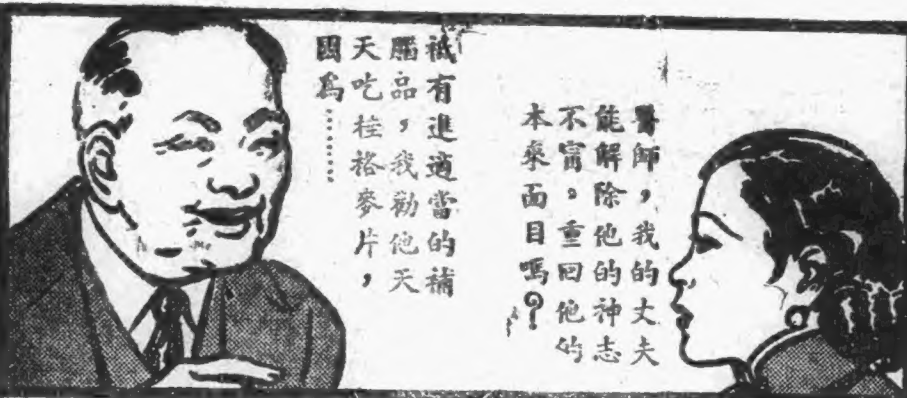 醫師，我的丈夫
能解除他的神志
不甯。重回他的
本來面目嗎？
祗有進適當的補
腦品，我勸他天
天吃桂格麥片，
因爲………